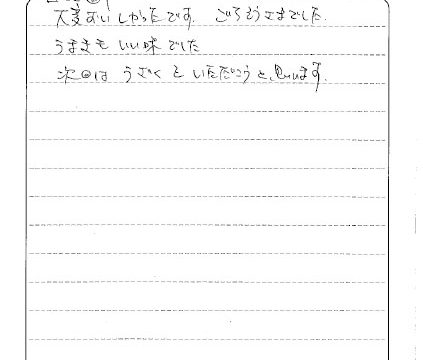 大変おいしかったです。 ごちそうさまでした。
うまきも いい味でした
次回は うざくを いただこうと思います。